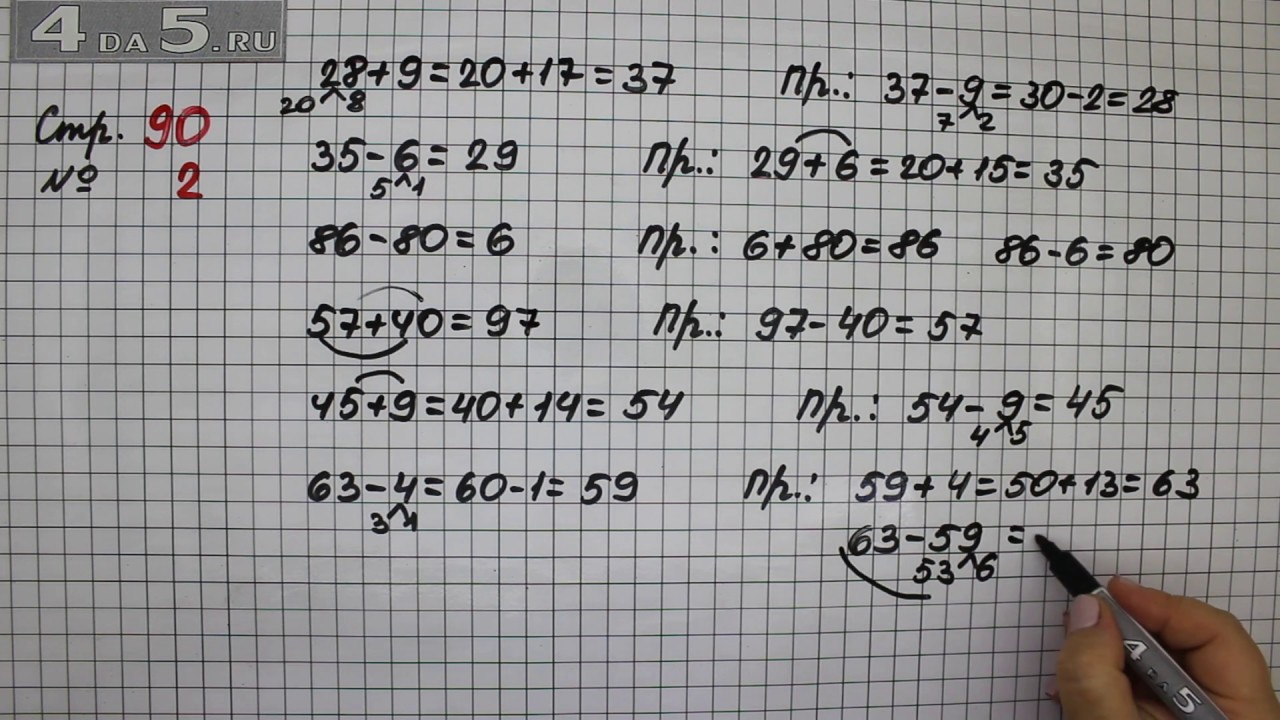 4 DA 5.RU
Стр. 90
№ 2
28+9=20+17=37 Пр.: 37-9=30-2=28
20 8 7 2
35-6=29 Пр.: 29+6=20+15=35
5 1
86-80=6 Пр.: 6+80=86 86-6=80
57+40=97 Пр.: 97-40=57
45+9=40+14=54 Пр.: 54-9=45
4 5
63-4=60-1=59 Пр.: 59+4=50+13=63
3 1
63-59=
53 6
4 DA 5